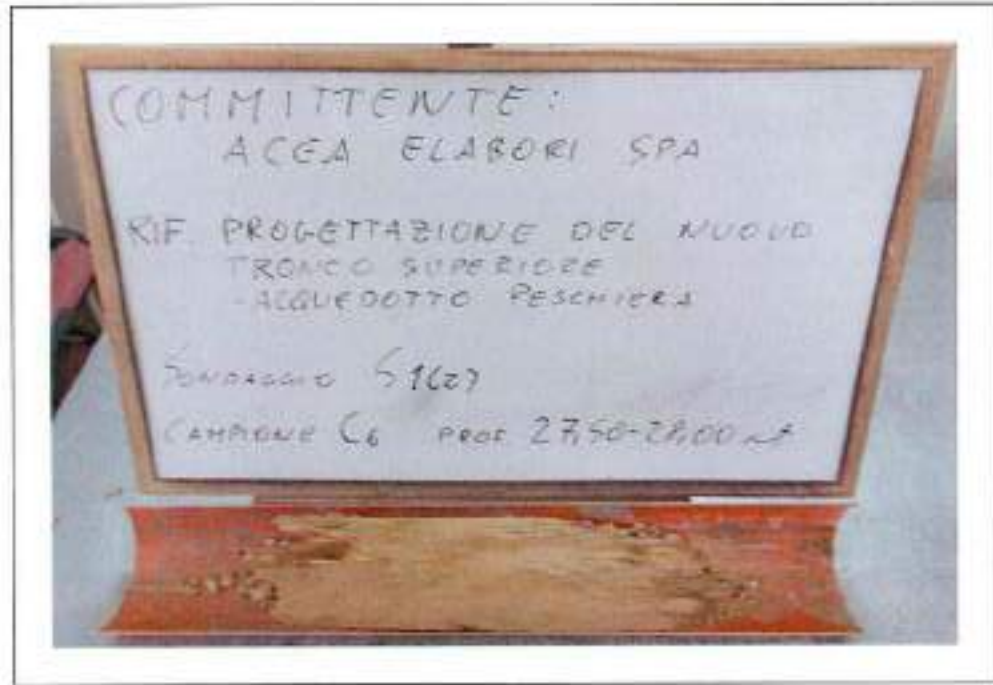 COMMITTENTE:
ACEA ELABORI SPA
RIF. PROGETTAZIONE DEL NUOVO
TRONCO SUPERIORE
-ACQUEDOTTO PESCHIERA
SONDAGGIO
CAMPIONE C6 PROF 27,50-28,00